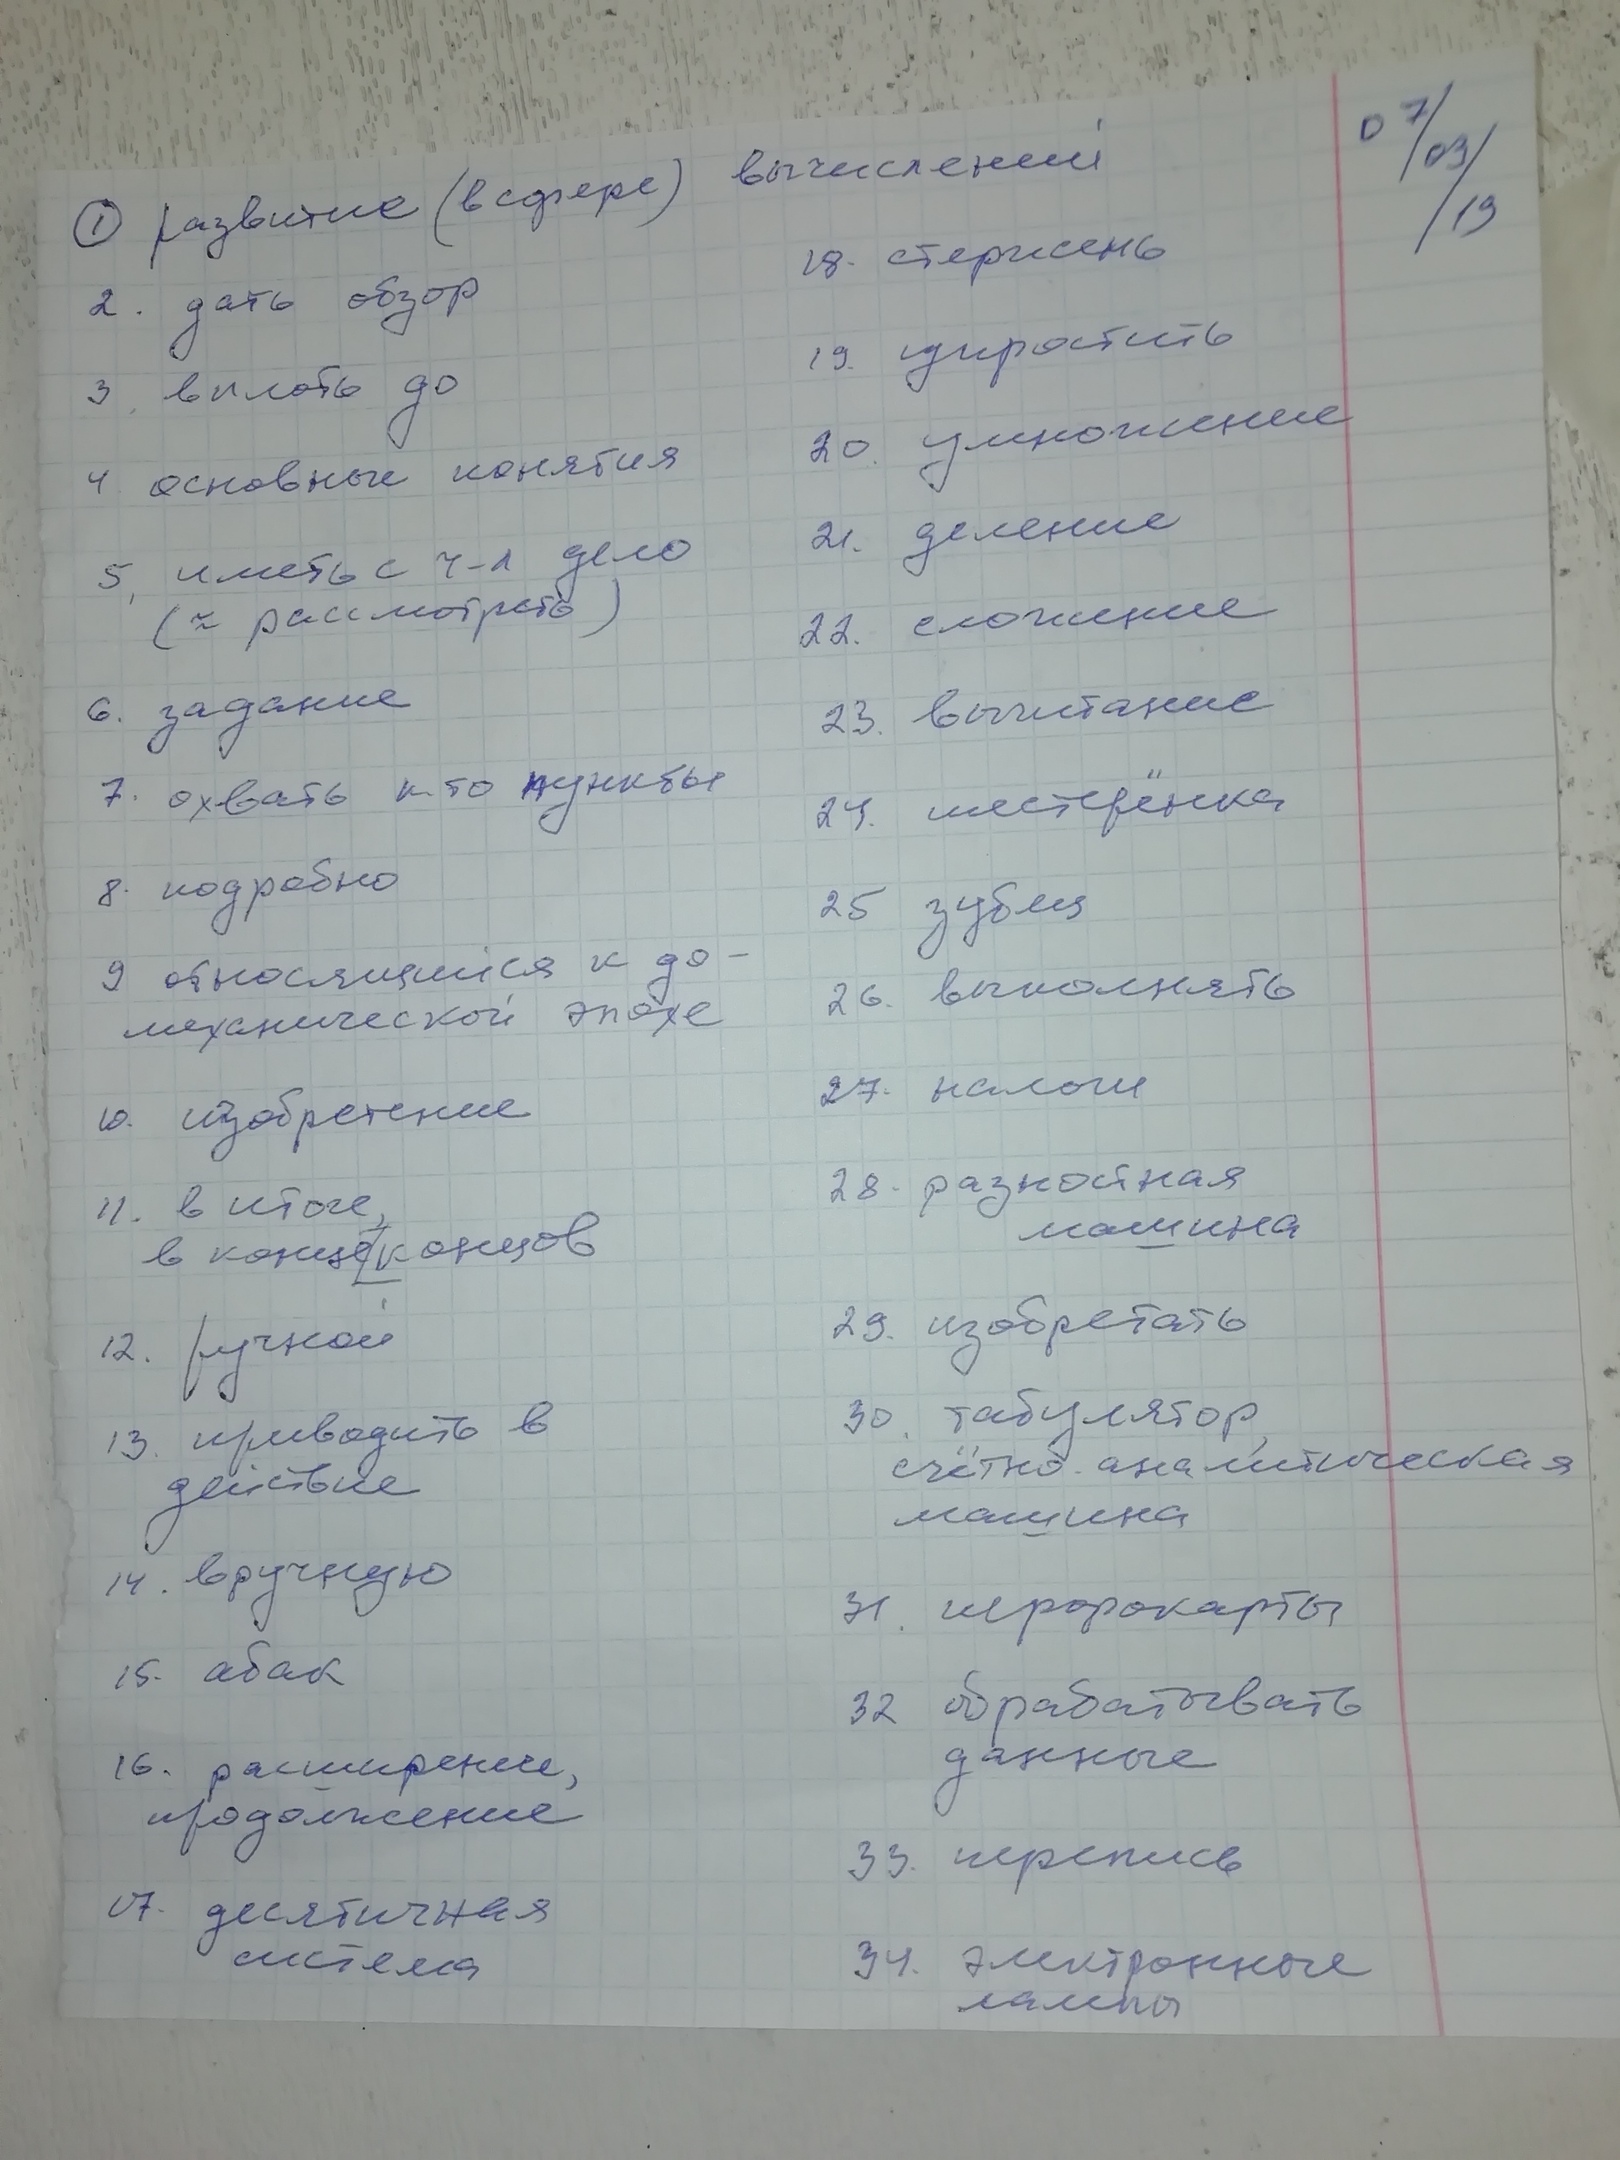 07/03/19
① развитие (в сфере) вычислений
2. дать обзор
3. вплоть до
4. основные понятия
5. иметь с ч-л дело
(≈ рассмотреть)
6. задание
7. охвать к-то пункты
8. подробно
9 относящийся к до-
механической эпохе
10. изобретение
11. в итоге,
в конце концов
12. ручной
13. приводить в
действие
14. вручную
15. абак
16. расширение,
продолжение
17. десятичная
система
18. стержень
19. упростить
20. умножение
21. деление
22. сложение
23. вычитание
24. шестерёнка
25 зубья
26. выполнять
27. налоги
28. разностная
машина
29. изобретать
30. табулятор,
счётно-аналитическая
машина
31. перфокарты
32 обрабатывать
данные
33. перепись
34. электронные
лампы